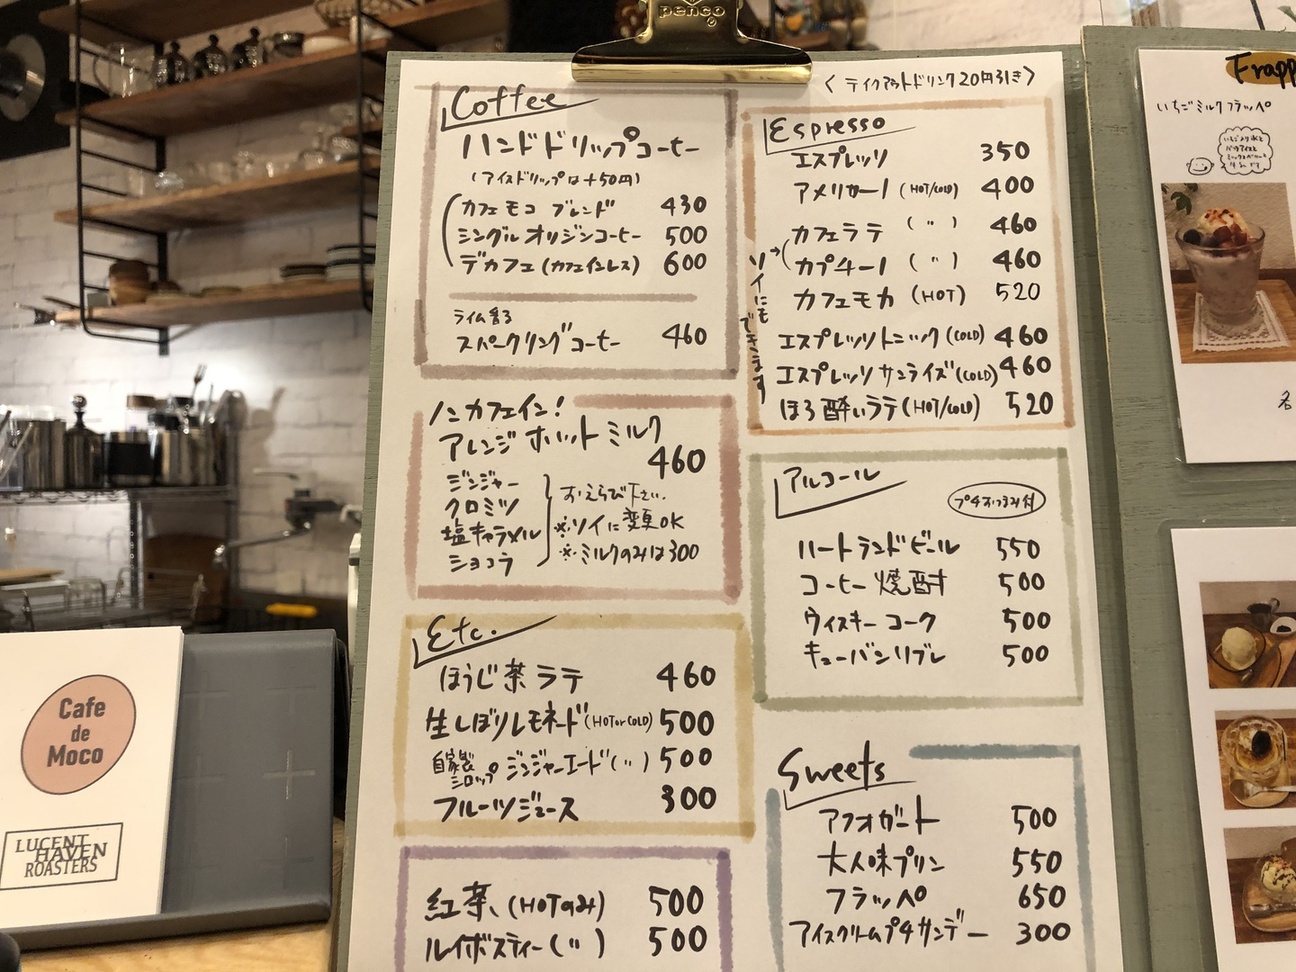 penco
〈 テイクアウトドリンク20円引き 〉
Coffee
ハンドドリップコーヒー
(アイスドリップは+50円)
カフェモコ ブレンド 430
シングルオリジンコーヒー 500
デカフェ(カフェインレス) 600
ライム香る
スパークリングコーヒー 460
ノンカフェイン!
アレンジ ホットミルク
460
ジンジャー
クロミツ
塩キャラメル
ショコラ
おえらび下さい.
※ソイに変更OK
※ミルクのみは300
Etc.
ほうじ茶ラテ 460
生しぼりレモネード(HOT or COLD) 500
自家製シロップ ジンジャーエード(〃) 500
フルーツジュース 300
紅茶、(HOTのみ) 500
ルイボスティー(〃) 500
Espresso
エスプレッソ 350
アメリカーノ(HOT/COLD) 400
カフェラテ (〃) 460
カプチーノ (〃) 460
ソイにもできます
カフェモカ (HOT) 520
エスプレッソトニック(COLD) 460
エスプレッソサンライズ(COLD) 460
ほろ酔いラテ(HOT/COLD) 520
アルコール
プチおつまみ付
ハートランドビール 550
コーヒー焼酎 500
ウィスキーコーク 500
キューバンリブレ 500
Sweets
アフォガート 500
大人味プリン 550
フラッペ 650
アイスクリームプチサンデー 300
Frapp
いちごミルクフラッペ
各
Cafe
de
Moco
LUCENT
HAVEN
ROASTERS